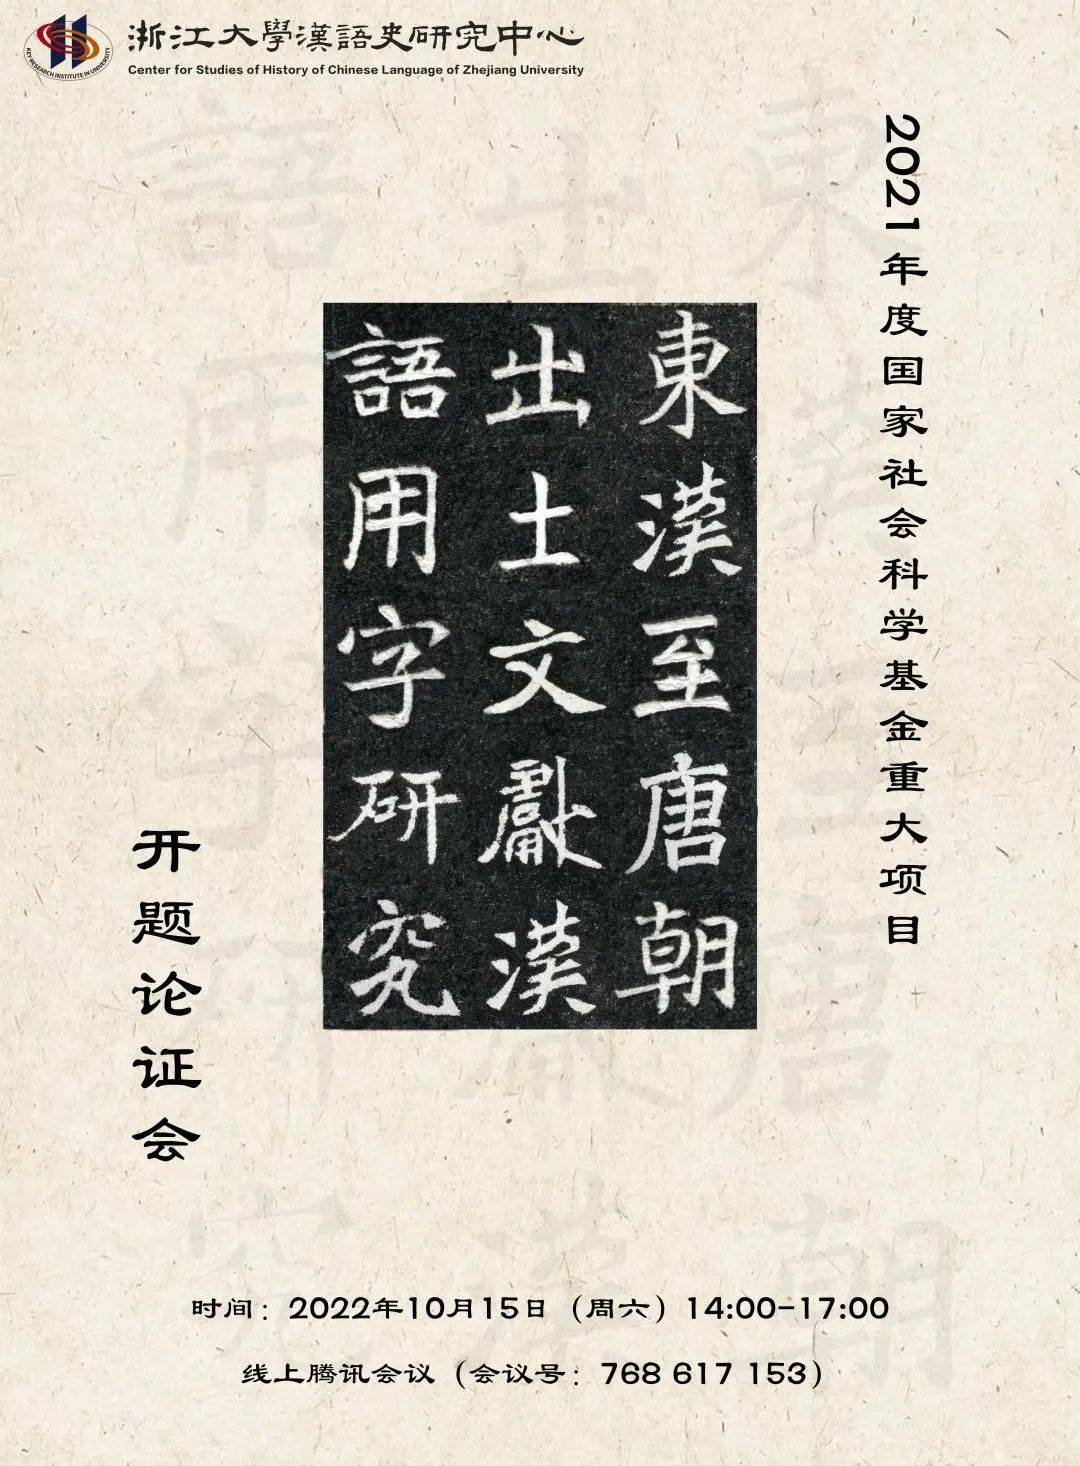 浙江大學漢語史研究中心
Center for Studies of History of Chinese Language of Zhejiang University
KEY RESEARCH INSTITUTE IN UNIVERSITY
2021年度国家社会科学基金重大项目
東漢至唐朝
出土文獻漢
語用字研究
开题论证会
时间：2022年10月15日（周六）14:00-17:00
线上腾讯会议（会议号：768 617 153）